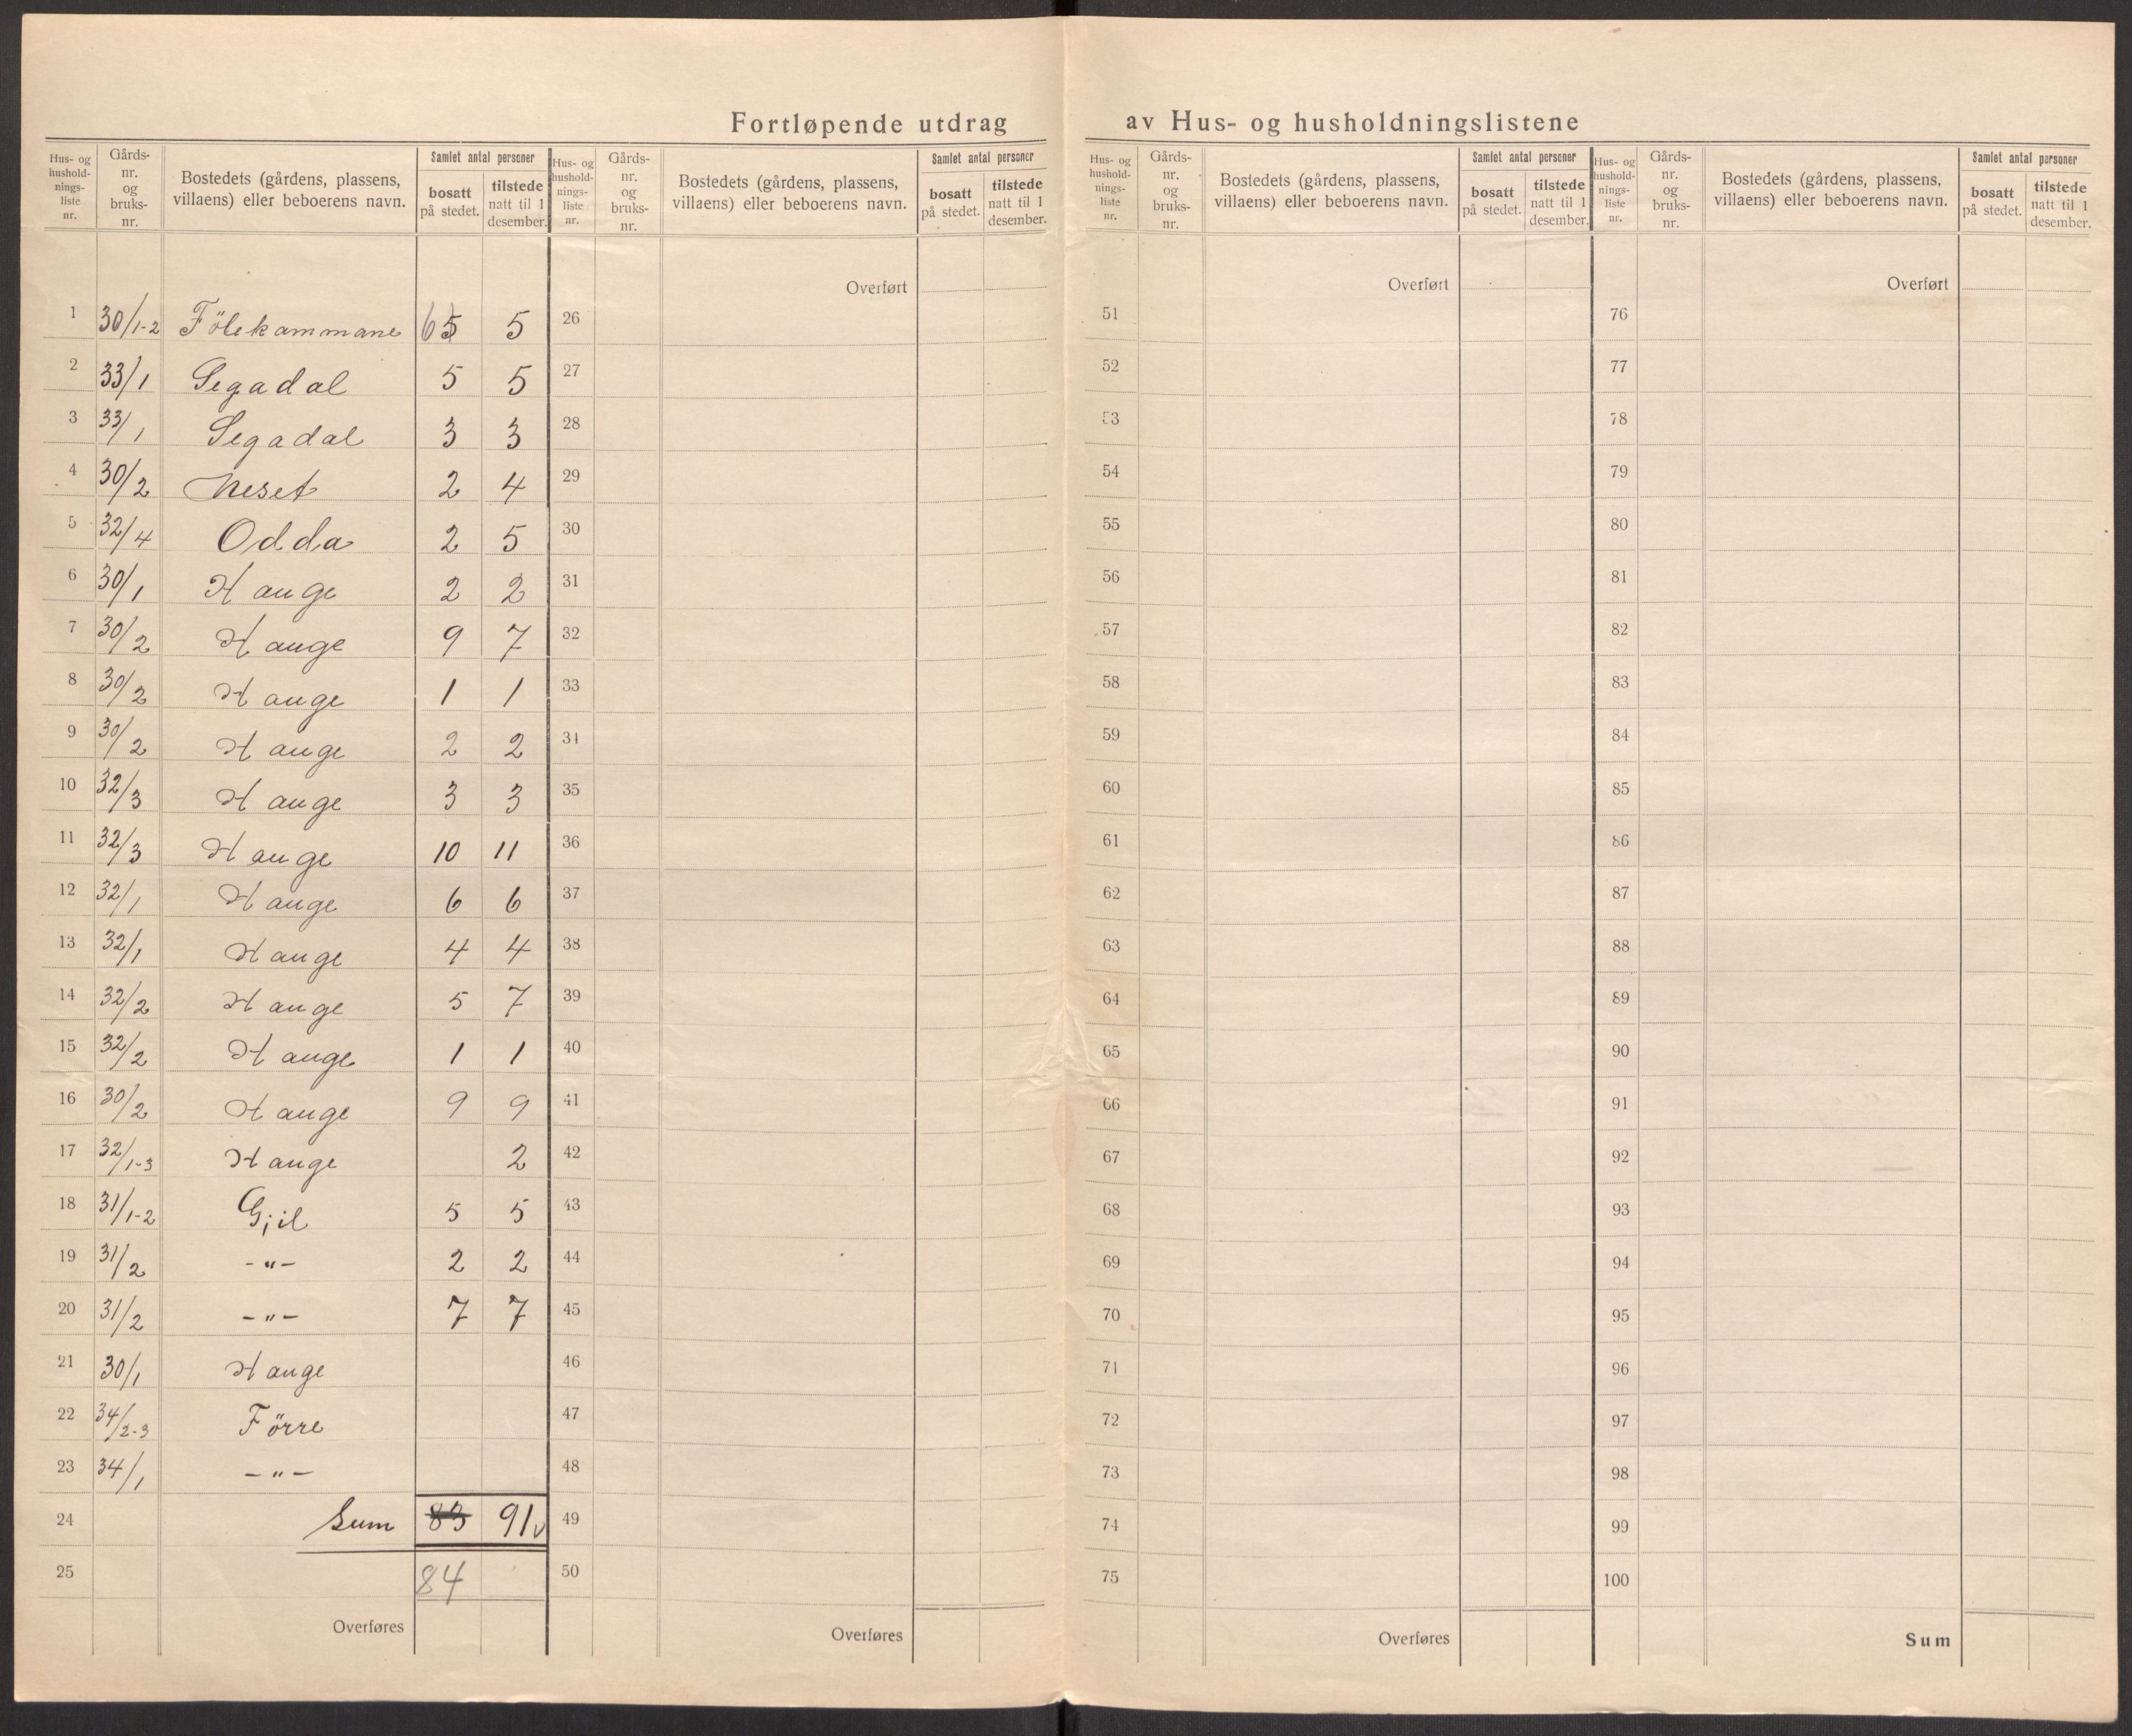 Fortløpende utdrag av Hus- og husholdningslistene
Hus- og hushold-nings-liste nr. | Gårds-nr. og bruks-nr. | Bostedets (gårdens, plassens, villaens) eller beboerens navn. | Samlet antal personer | bosatt på stedet. | tilstede natt til 1 desember.
Hus- og hushold-nings-liste nr. | Gårds-nr. og bruks-nr. | Bostedets (gårdens, plassens, villaens) eller beboerens navn. | Samlet antal personer | bosatt på stedet. | tilstede natt til 1 desember.
Hus- og hushold-nings-liste nr. | Gårds-nr. og bruks-nr. | Bostedets (gårdens, plassens, villaens) eller beboerens navn. | Samlet antal personer | bosatt på stedet. | tilstede natt til 1 desember.
Hus- og hushold-nings-liste nr. | Gårds-nr. og bruks-nr. | Bostedets (gårdens, plassens, villaens) eller beboerens navn. | Samlet antal personer | bosatt på stedet. | tilstede natt til 1 desember.
1 30/1-2 Fölekammane 6 5 5
2 33/1 Segadal 5 5
3 33/1 Segadal 3 3
4 30/2 Neset 2 4
5 32/4 Odda 2 5
6 30/1 Hauge 2 2
7 30/2 Hauge 9 7
8 30/2 Hauge 1 1
9 30/2 Hauge 2 2
10 32/3 Hauge 3 3
11 32/3 Hauge 10 11
12 32/1 Hauge 6 6
13 32/1 Hauge 4 4
14 32/2 Hauge 5 7
15 32/2 Hauge 1 1
16 30/2 Hauge 9 9
17 32/1-3 Hauge 2
18 31/1-2 Gjil 5 5
19 31/2 -"- 2 2
20 31/2 -"- 7 7
21 30/1 Hauge
22 34/2-3 Förre
23 34/1 -"-
24 Sum 83 91 v
25 84
Overføres
Overført
26
27
28
29
30
31
32
33
34
35
36
37
38
39
40
41
42
43
44
45
46
47
48
49
50
Overføres
Overført
51
52
53
54
55
56
57
58
59
60
61
62
63
64
65
66
67
68
69
70
71
72
73
74
75
Overføres
Overført
76
77
78
79
80
81
82
83
84
85
86
87
88
89
90
91
92
93
94
95
96
97
98
99
100
Sum